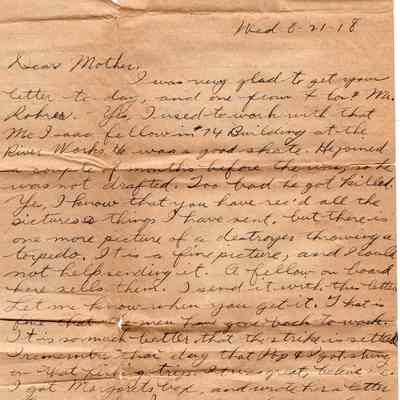 Wed 8-21-18
Dear Mother,
I was very glad to get your
letter to-day, and one from Mr.
Rohrer. Yes, I used to work with that
McIsaac fellow in 74 Building at the
River Works, he was a good skate. He joined
a couple of months before the war, he
was not drafted. Too bad he got killed.
Yes, I know that you have rec'd all the
pictures & things I have sent, but there is
one more picture of a destroyer throwing a
torpedo. It is a fine picture, and I could
not help sending it. A fellow on board
here sells them. I send it with this letter
Let me know when you get it. That is
fine that men have gone back to work.
It is so much better that the strike is settled
I remember that day that Pop & I got
on that fishing trip. It was great, believe me
I got Margaret's box, and wrote her a letter